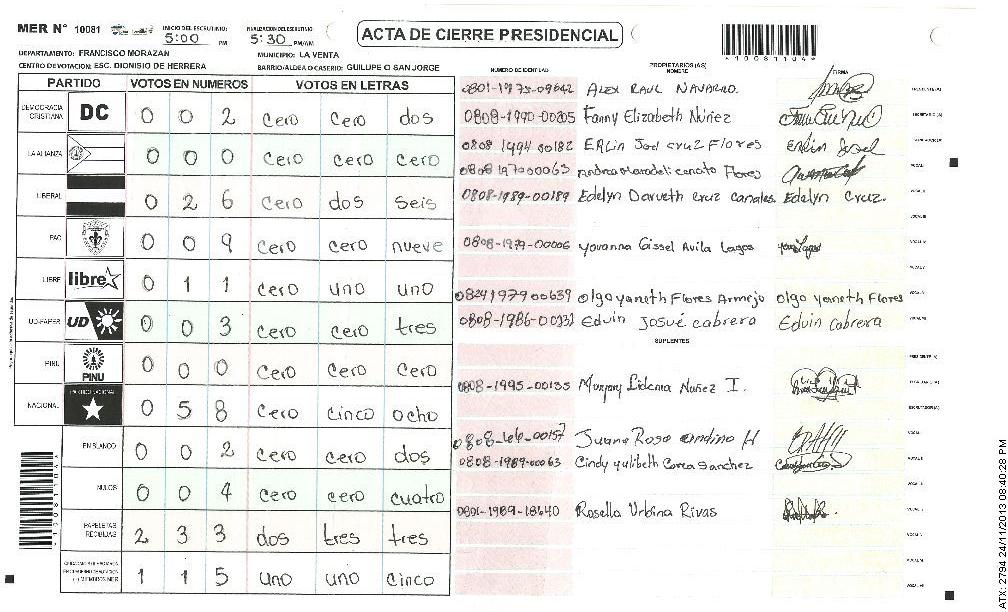 MER N° 10081 INICIO DEL ESCRUTINIO: 5:00 PM FINALIZACION DEL ESCRUTINIO 5:30 PM/AM ACTA DE CIERRE PRESIDENCIAL
DEPARTAMENTO: FRANCISCO MORAZAN MUNICIPIO: LA VENTA
CENTRO DE VOTACION: ESC. DIONISIO DE HERRERA BARRIO/ALDEA O CASERIO: GUILUPE O SAN JORGE
PARTIDO VOTOS EN NUMEROS VOTOS EN LETRAS
DEMOCRACIA CRISTIANA DC 0 0 2 cero cero dos
LA ALIANZA 0 0 0 cero cero cero
LIBERAL 0 2 6 cero dos seis
PAC 0 0 9 cero cero nueve
LIBRE libre 0 1 1 cero uno uno
UD-FAPER UD 0 0 3 cero cero tres
PINU PINU 0 0 0 cero cero cero
NACIONAL 0 5 8 cero cinco ocho
EN BLANCO 0 0 2 cero cero dos
NULOS 0 0 4 cero cero cuatro
PAPELETAS RECIBIDAS 2 3 3 dos tres tres
1 1 5 uno uno cinco
*10081104*
NUMERO DE IDENTIDAD PROPIETARIOS (AS) NOMBRE FIRMA
0801-1975-09642 ALEX RAUL NAVARRO.
0808-1990-00205 Fanny Elizabeth Núñez
0808 1994 00182 ERlin Joel cruz Flores
0808 1970 00063 Flores
0808-1989-00189 Edelyn Daryeth cruz canales. Edelyn Cruz.
0808-1979-00006 yovanna Gissel Avila Lagos
0824197900639 olga yaneth Flores Armejo olga yaneth Flores
0808-1986-00331 Edwin Josué cabrera Edwin cabrera
SUPLENTES
0808-1995-00135 Nuñez I.
Juana Rosa andino H
0808-1989-00063 Cindy yulibeth Corea Sanchez
0801-1989-18640 Rosella Urbina Rivas
ATX: 2794 24/11/2013 08:40:28 PM